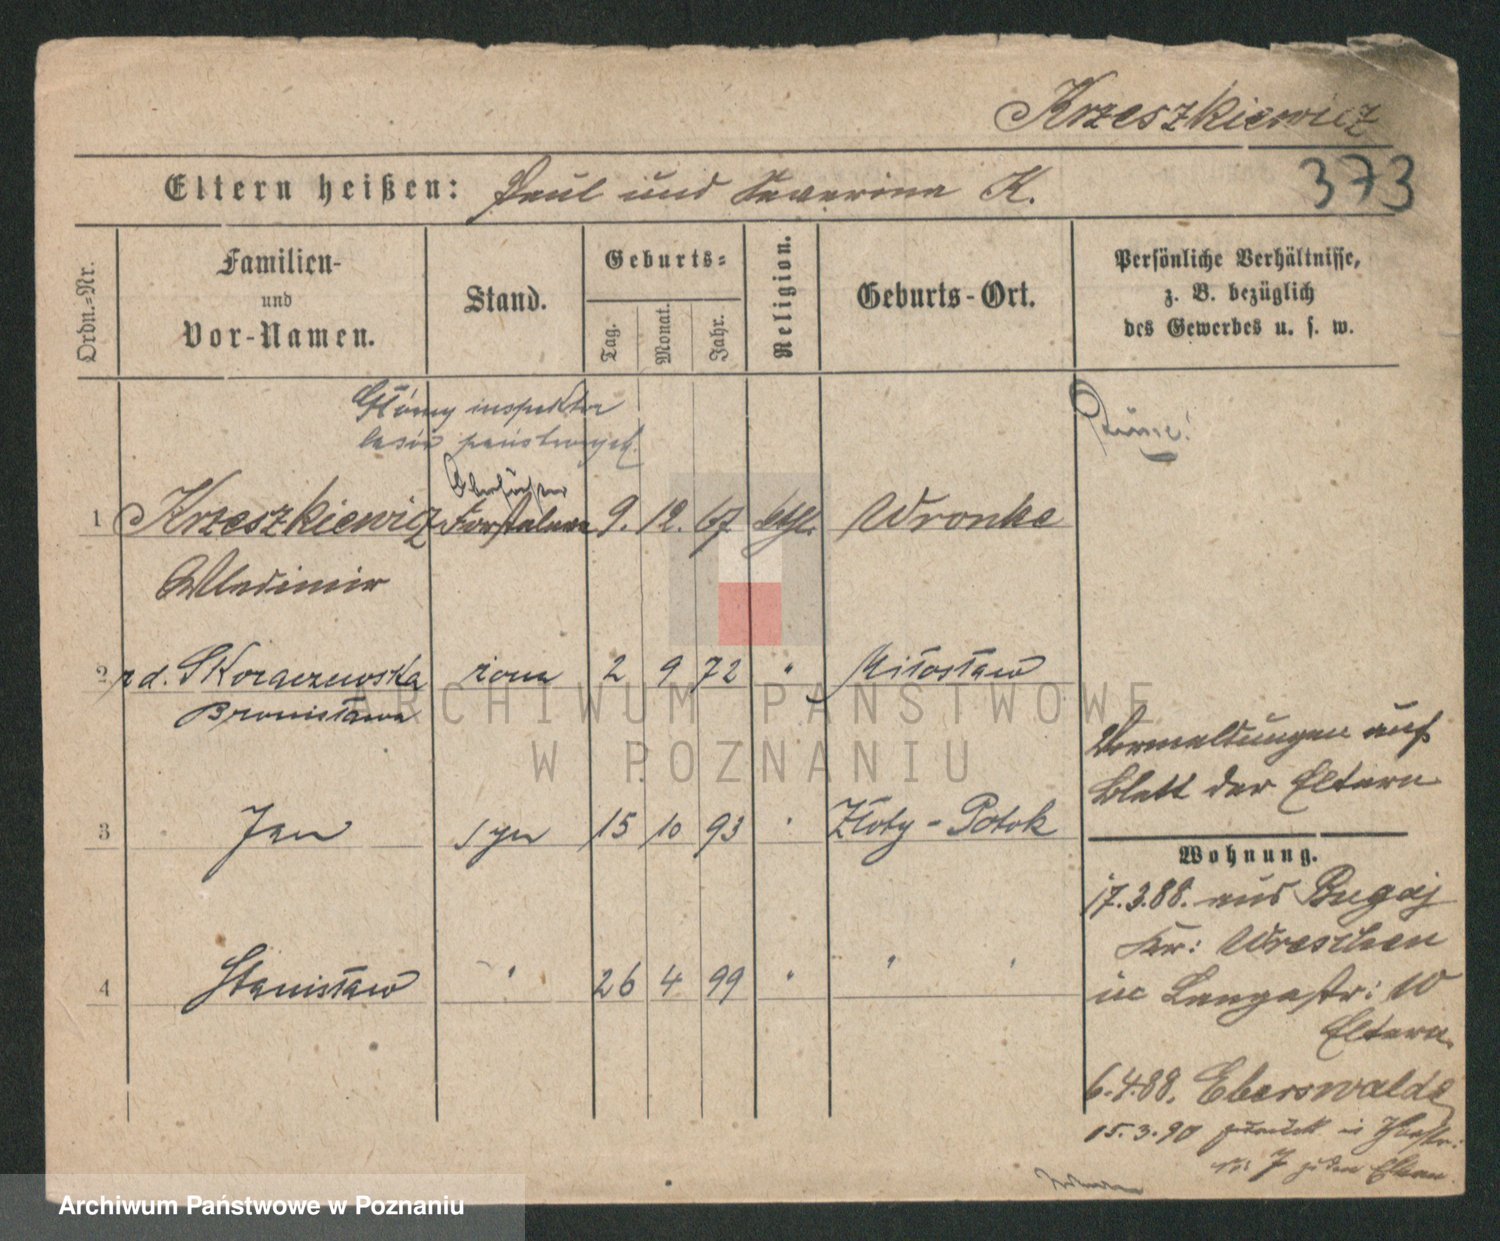 Krzeszkiewicz
373
Eltern heißen: Paul und Severina K.
Ordn.-Nr.
Familien-
und
Vor-Namen.
Stand.
Geburts-
Tag.
Monat.
Jahr.
Religion.
Geburts-Ort.
Persönliche Verhältnisse,
z. B. bezüglich
des Gewerbes u. s. w.
Główny inspektor
lasów państwowych
Oberförster
1 Krzeszkiewicz 9. 12. 67 kath. Wronke
Wladimir
2 rd. Skoraczewska żona 2 9 72 " Miłosław
Bronisława
Vermeldungen auf
Blatt der Eltern
3 Jan syn 15 10 93 " Złoty-Potok
Wohnung.
17.3.88. aus Bugaj
Kr: Wreschen
in Langestr: 10
Eltern.
4 Stanisław " 26 4 99 " " "
6.4.88. Eberswalde
15.3.90 zurück in
Nr 7 zu den Eltern
ARCHIWUM PAŃSTWOWE
W POZNANIU
Archiwum Państwowe w Poznaniu